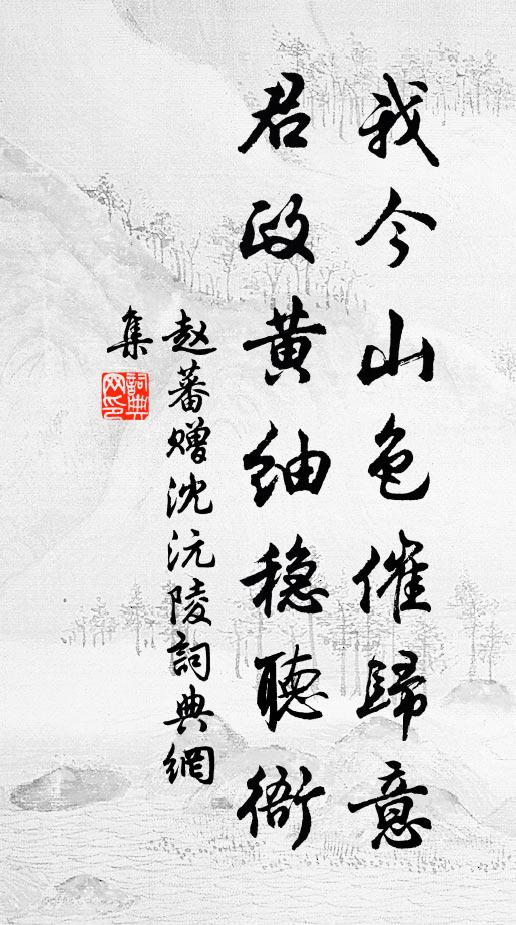 我今山色催歸意
君政黄紬稳聽衙
赵蕃赠沈沅陵詞典網
集
詞典网印